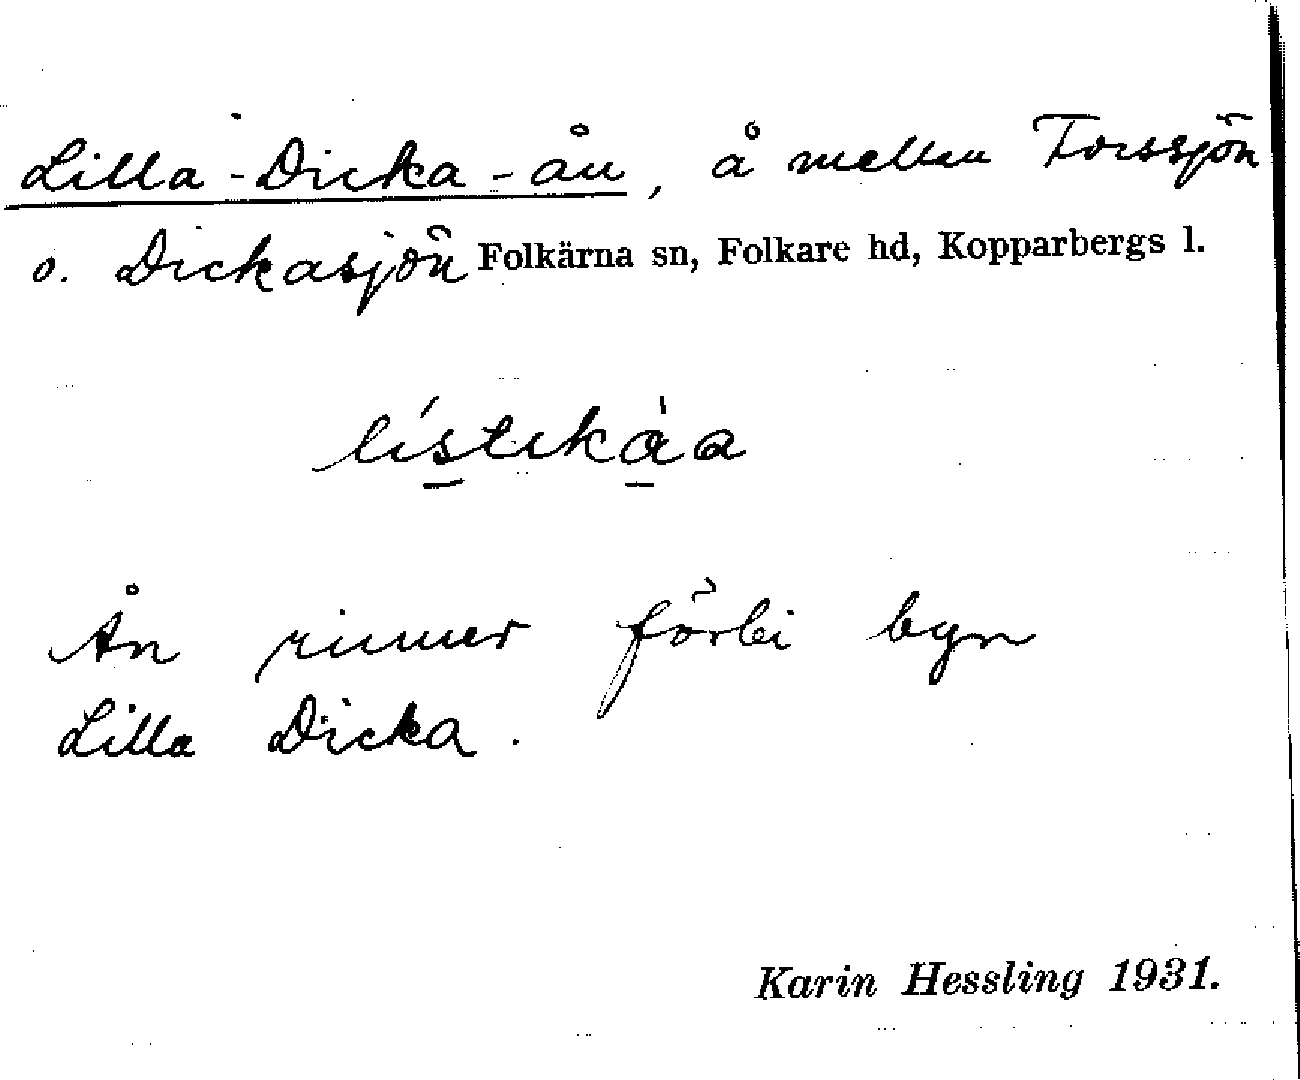 Lilla-Dicka-ån, å mellan Forssjön
o. Dickasjön Folkärna sn, Folkare hd, Kopparbergs l.
Ån rinner förbi byn
Lilla Dicka.
Karin Hessling 1931.